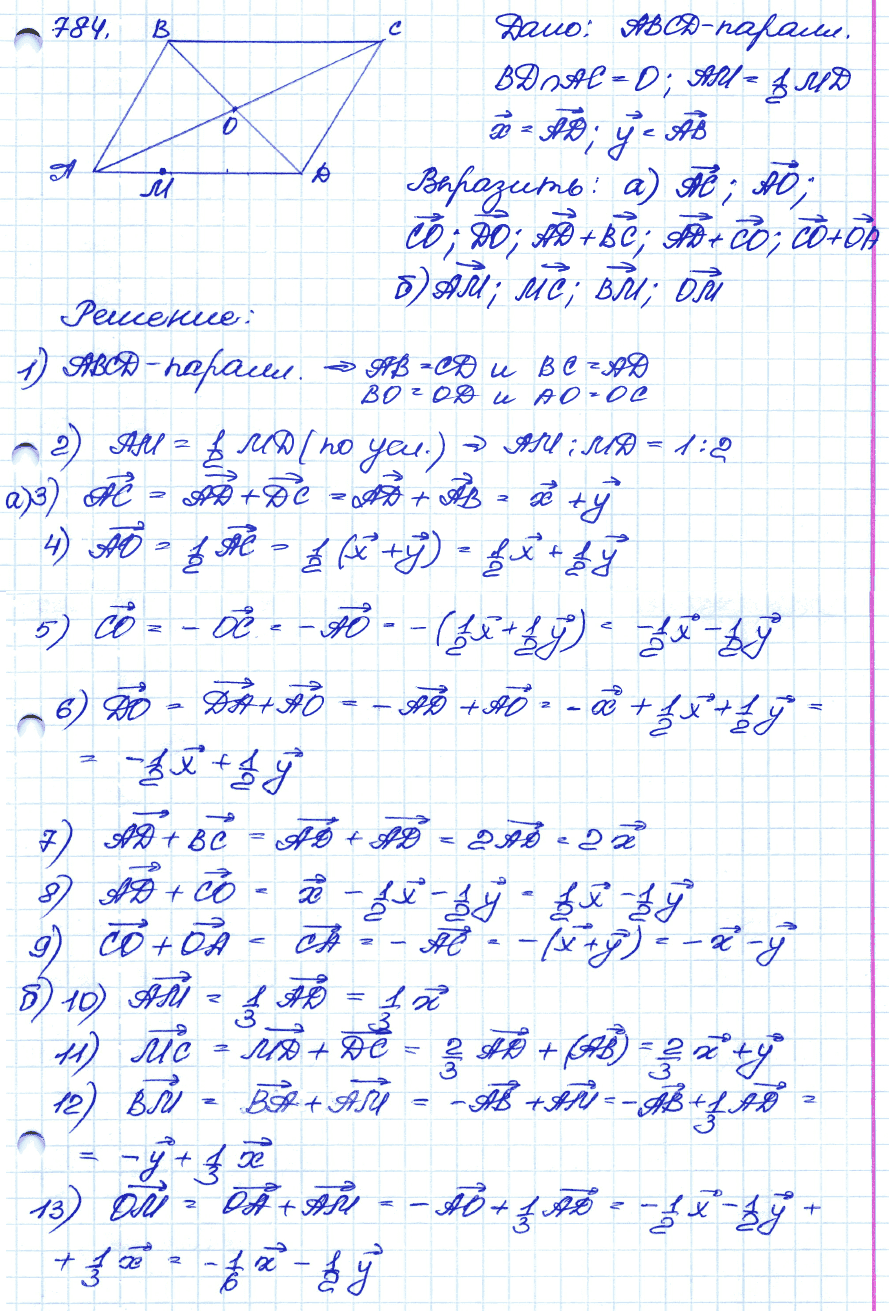 784.
B
C
O
A
M
D
Дано: ABCD-паралл.
BD∩AC = O; AM = 1/2 MD
x⃗ = AD⃗; y⃗ = AB⃗
Выразить: а) AC⃗; AO⃗;
CO⃗; DO⃗; AD⃗ + BC⃗; AD⃗ + CO⃗; CO⃗ + OA⃗
б) AM⃗; MC⃗; BM⃗; OM⃗
Решение:
1) ABCD-паралл. ⇒ AB = CD и BC = AD
BO = OD и AO = OC
2) AM = 1/2 MD (по усл.) ⇒ AM : MD = 1:2
а) 3) AC⃗ = AD⃗ + DC⃗ = AD⃗ + AB⃗ = x⃗ + y⃗
4) AO⃗ = 1/2 AC⃗ = 1/2 (x⃗ + y⃗) = 1/2 x⃗ + 1/2 y⃗
5) CO⃗ = - OC⃗ = - AO⃗ = - (1/2 x⃗ + 1/2 y⃗) = -1/2 x⃗ - 1/2 y⃗
6) DO⃗ = DA⃗ + AO⃗ = - AD⃗ + AO⃗ = - x⃗ + 1/2 x⃗ + 1/2 y⃗ =
= -1/2 x⃗ + 1/2 y⃗
7) AD⃗ + BC⃗ = AD⃗ + AD⃗ = 2AD⃗ = 2x⃗
8) AD⃗ + CO⃗ = x⃗ - 1/2 x⃗ - 1/2 y⃗ = 1/2 x⃗ - 1/2 y⃗
9) CO⃗ + OA⃗ = CA⃗ = - AC⃗ = - (x⃗ + y⃗) = - x⃗ - y⃗
б) 10) AM⃗ = 1/3 AD⃗ = 1/3 x⃗
11) MC⃗ = MD⃗ + DC⃗ = 2/3 AD⃗ + (AB⃗) = 2/3 x⃗ + y⃗
12) BM⃗ = BA⃗ + AM⃗ = - AB⃗ + AM⃗ = - AB⃗ + 1/3 AD⃗ =
= - y⃗ + 1/3 x⃗
13) OM⃗ = OA⃗ + AM⃗ = - AO⃗ + 1/3 AD⃗ = - 1/2 x⃗ - 1/2 y⃗ +
+ 1/3 x⃗ = - 1/6 x⃗ - 1/2 y⃗